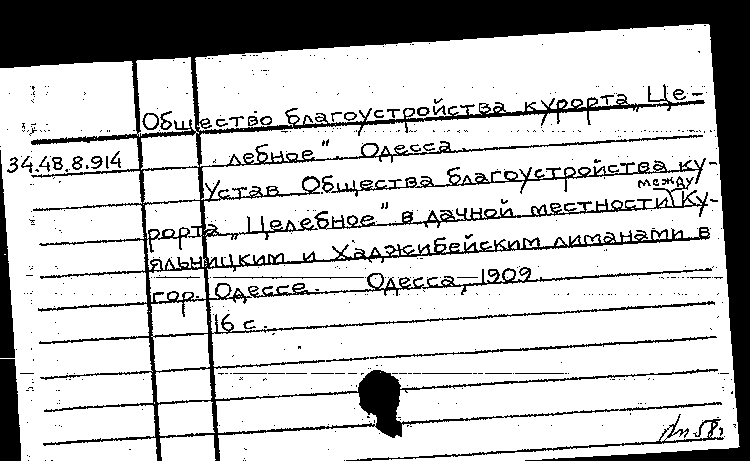 Общество благоустройства курорта „Це-
34.48.8.914 лебное". Одесса.
Устав Общества благоустройства ку-
рорта „Целебное" в дачной местности между Ку-
яльницким и Хаджибейским лиманами в
гор. Одессе. Одесса, 1909.
16 с.